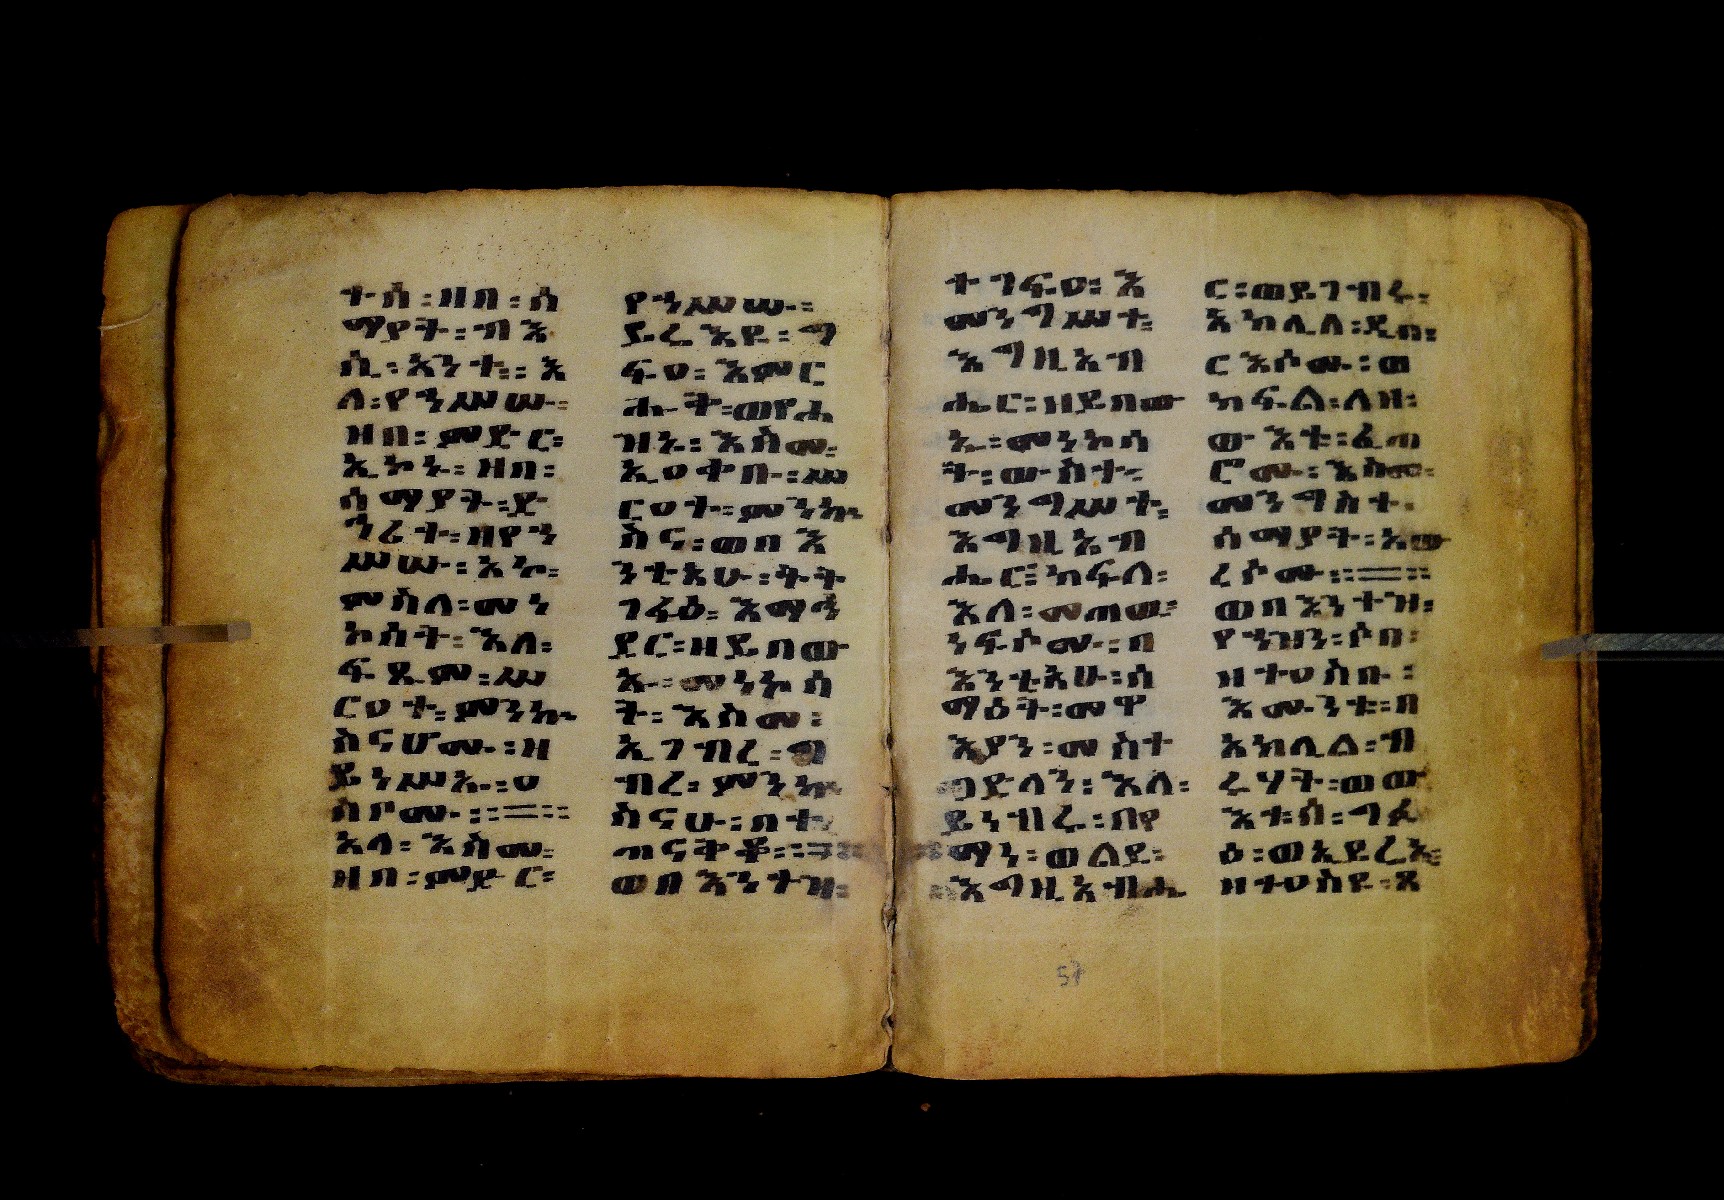 ተሰ፡ዘበ፡ሰ
ማያት፡ብእ
ሲ፡አንተ፡፡እ
ለ፡የኀሥሡ፡
ዘበ፡ምድር፡
ኢኮኑ፡ዘበ፡
ሰማያት፡ድ
ኅረት፡ዘየኀ
ሥሡ፡አኮ፡
ምስለ፡መነ
ኮሰት፡እለ፡
ፍጹም፡ሥ
ርዐተ፡ምንኵ
ስናሆሙ፡ዘ
ይኀሥኡ፡ዐ
ስቦሙ፡፡=፡፡
እለ፡እስመ፡
ዘበ፡ምድር፡
የኀሥሡ፡
ይሬእዩ፡ግ
ፍዐ፡እምር
ሑት፡ወየሐ
ዝኑ፡እስመ፡
ኢዐቀቡ፡ሥ
ርዐተ፡ምንኵ
ስና፡ወበእ
ንቲአሁ፡ትት
ገፋዕ፡እማኅ
ደር፡ዘይበው
ኡ፡መነኮሳ
ት፡እስመ፡
ኢገብረ፡ግ
ብረ፡ምንኵ
ስናሁ፡በተ
ጠናቅቆ፡፡=፡፡
ወበእንተዝ፡
ተገፍዐ፡እ
መንግሥተ፡
እግዚአብ
ሔር፡ዘይበው
ኡ፡መነኮሳ
ት፡ውስተ፡
መንግሥተ፡
እግዚአብ
ሔር፡ክፍለ፡
እለ፡መጠዉ፡
ነፍሶሙ፡በ
እንቲአሁ፡ሰ
ማዕት፡መዋ
እያን፡መስተ
ጋድላን፡እለ፡
ይነብሩ፡በየ
ማነ፡ወልድ፡
እግዚአብሔ
ር፡ወይገብሩ፡
አክሊለ፡ዲበ፡
ርእሶሙ፡ወ
ክፍልለዘ፡
ውእቱ፡ፈጠ
ሮሙ፡እስመ፡
መንግስተ፡
ሰማያት፡አው
ረሶሙ፡፡=፡፡
ወበእንተዝ፡
የኀዝን፡ሶበ፡
ዘተዐስቡ፡
እሙንቱ፡በ
አክሊል፡ብ
ሩሃት፡ወው
እቱ፡ሰ፡ግፉ
ዕ፡ወኢይረአ፡
ዘተዐስየ፡ጻ
57